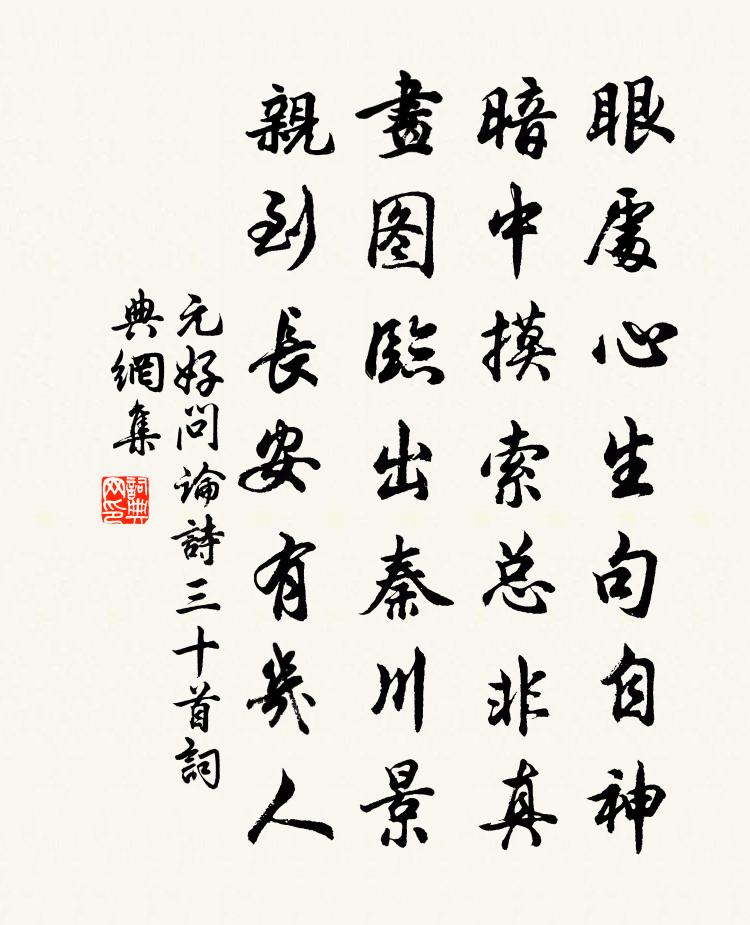 眼處心生句自神
暗中摸索总非真
畫图臨出秦川景
親到長安有幾人
元好问論詩三十首詞
典網集
詞典
网印